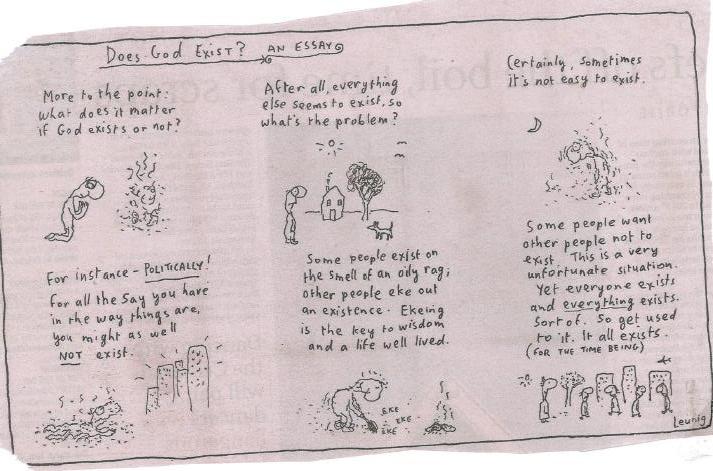 DOES GOD EXIST? AN ESSAY
More to the point:
what does it matter
if God exists or not?
After all, everything
else seems to exist, so
what's the problem?
Certainly, sometimes
it's not easy to exist.
For instance - POLITICALLY!
For all the say you have
in the way things are,
you might as well
NOT exist.
Some people exist on
the smell of an oily rag;
other people eke out
an existence. Ekeing
is the key to wisdom
and a life well lived.
EKE
EKE
EKE
Some people want
other people not to
exist. This is a very
unfortunate situation.
Yet everyone exists
and everything exists.
Sort of. So get used
to it. It all exists.
(FOR THE TIME BEING)
Leunig